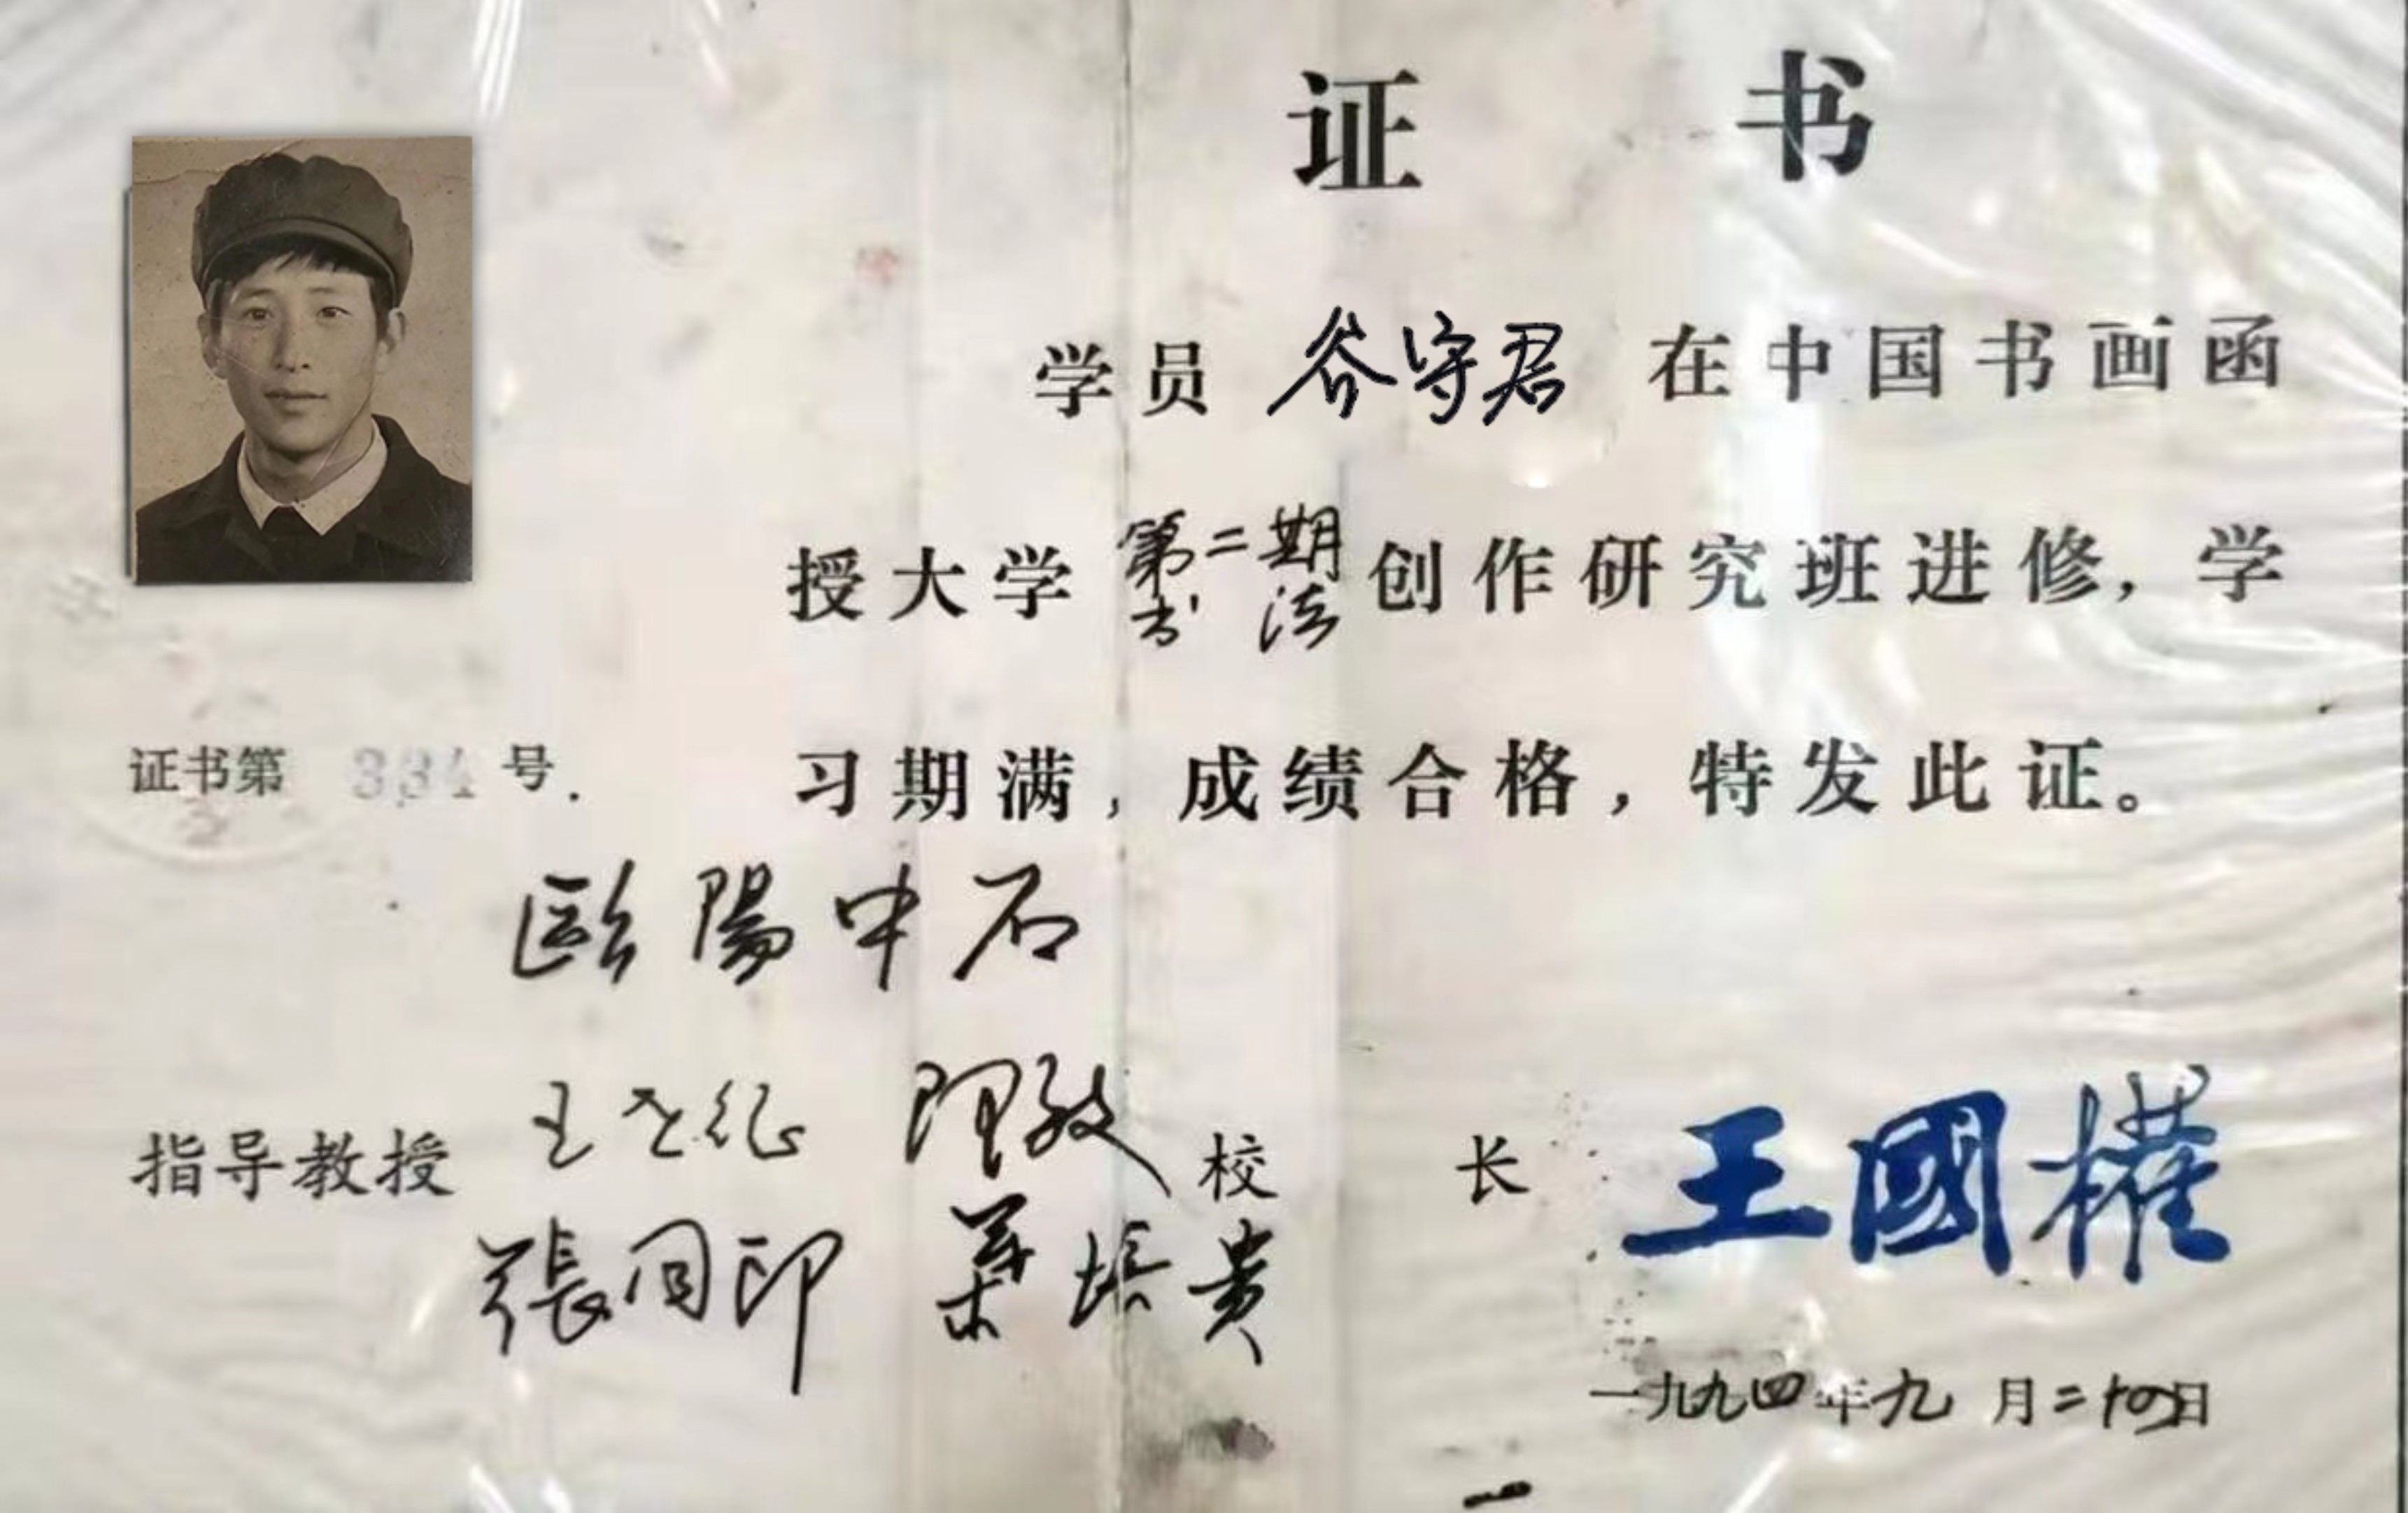 证 书
学员 谷守君 在中国书画函
授大学 第二期书法 创作研究班进修，学
习期满，成绩合格，特发此证。
证书第 334 号
歐陽中石
指导教授
張同印 葉培贵
校 长 王國權
一九九四年九月二十四日